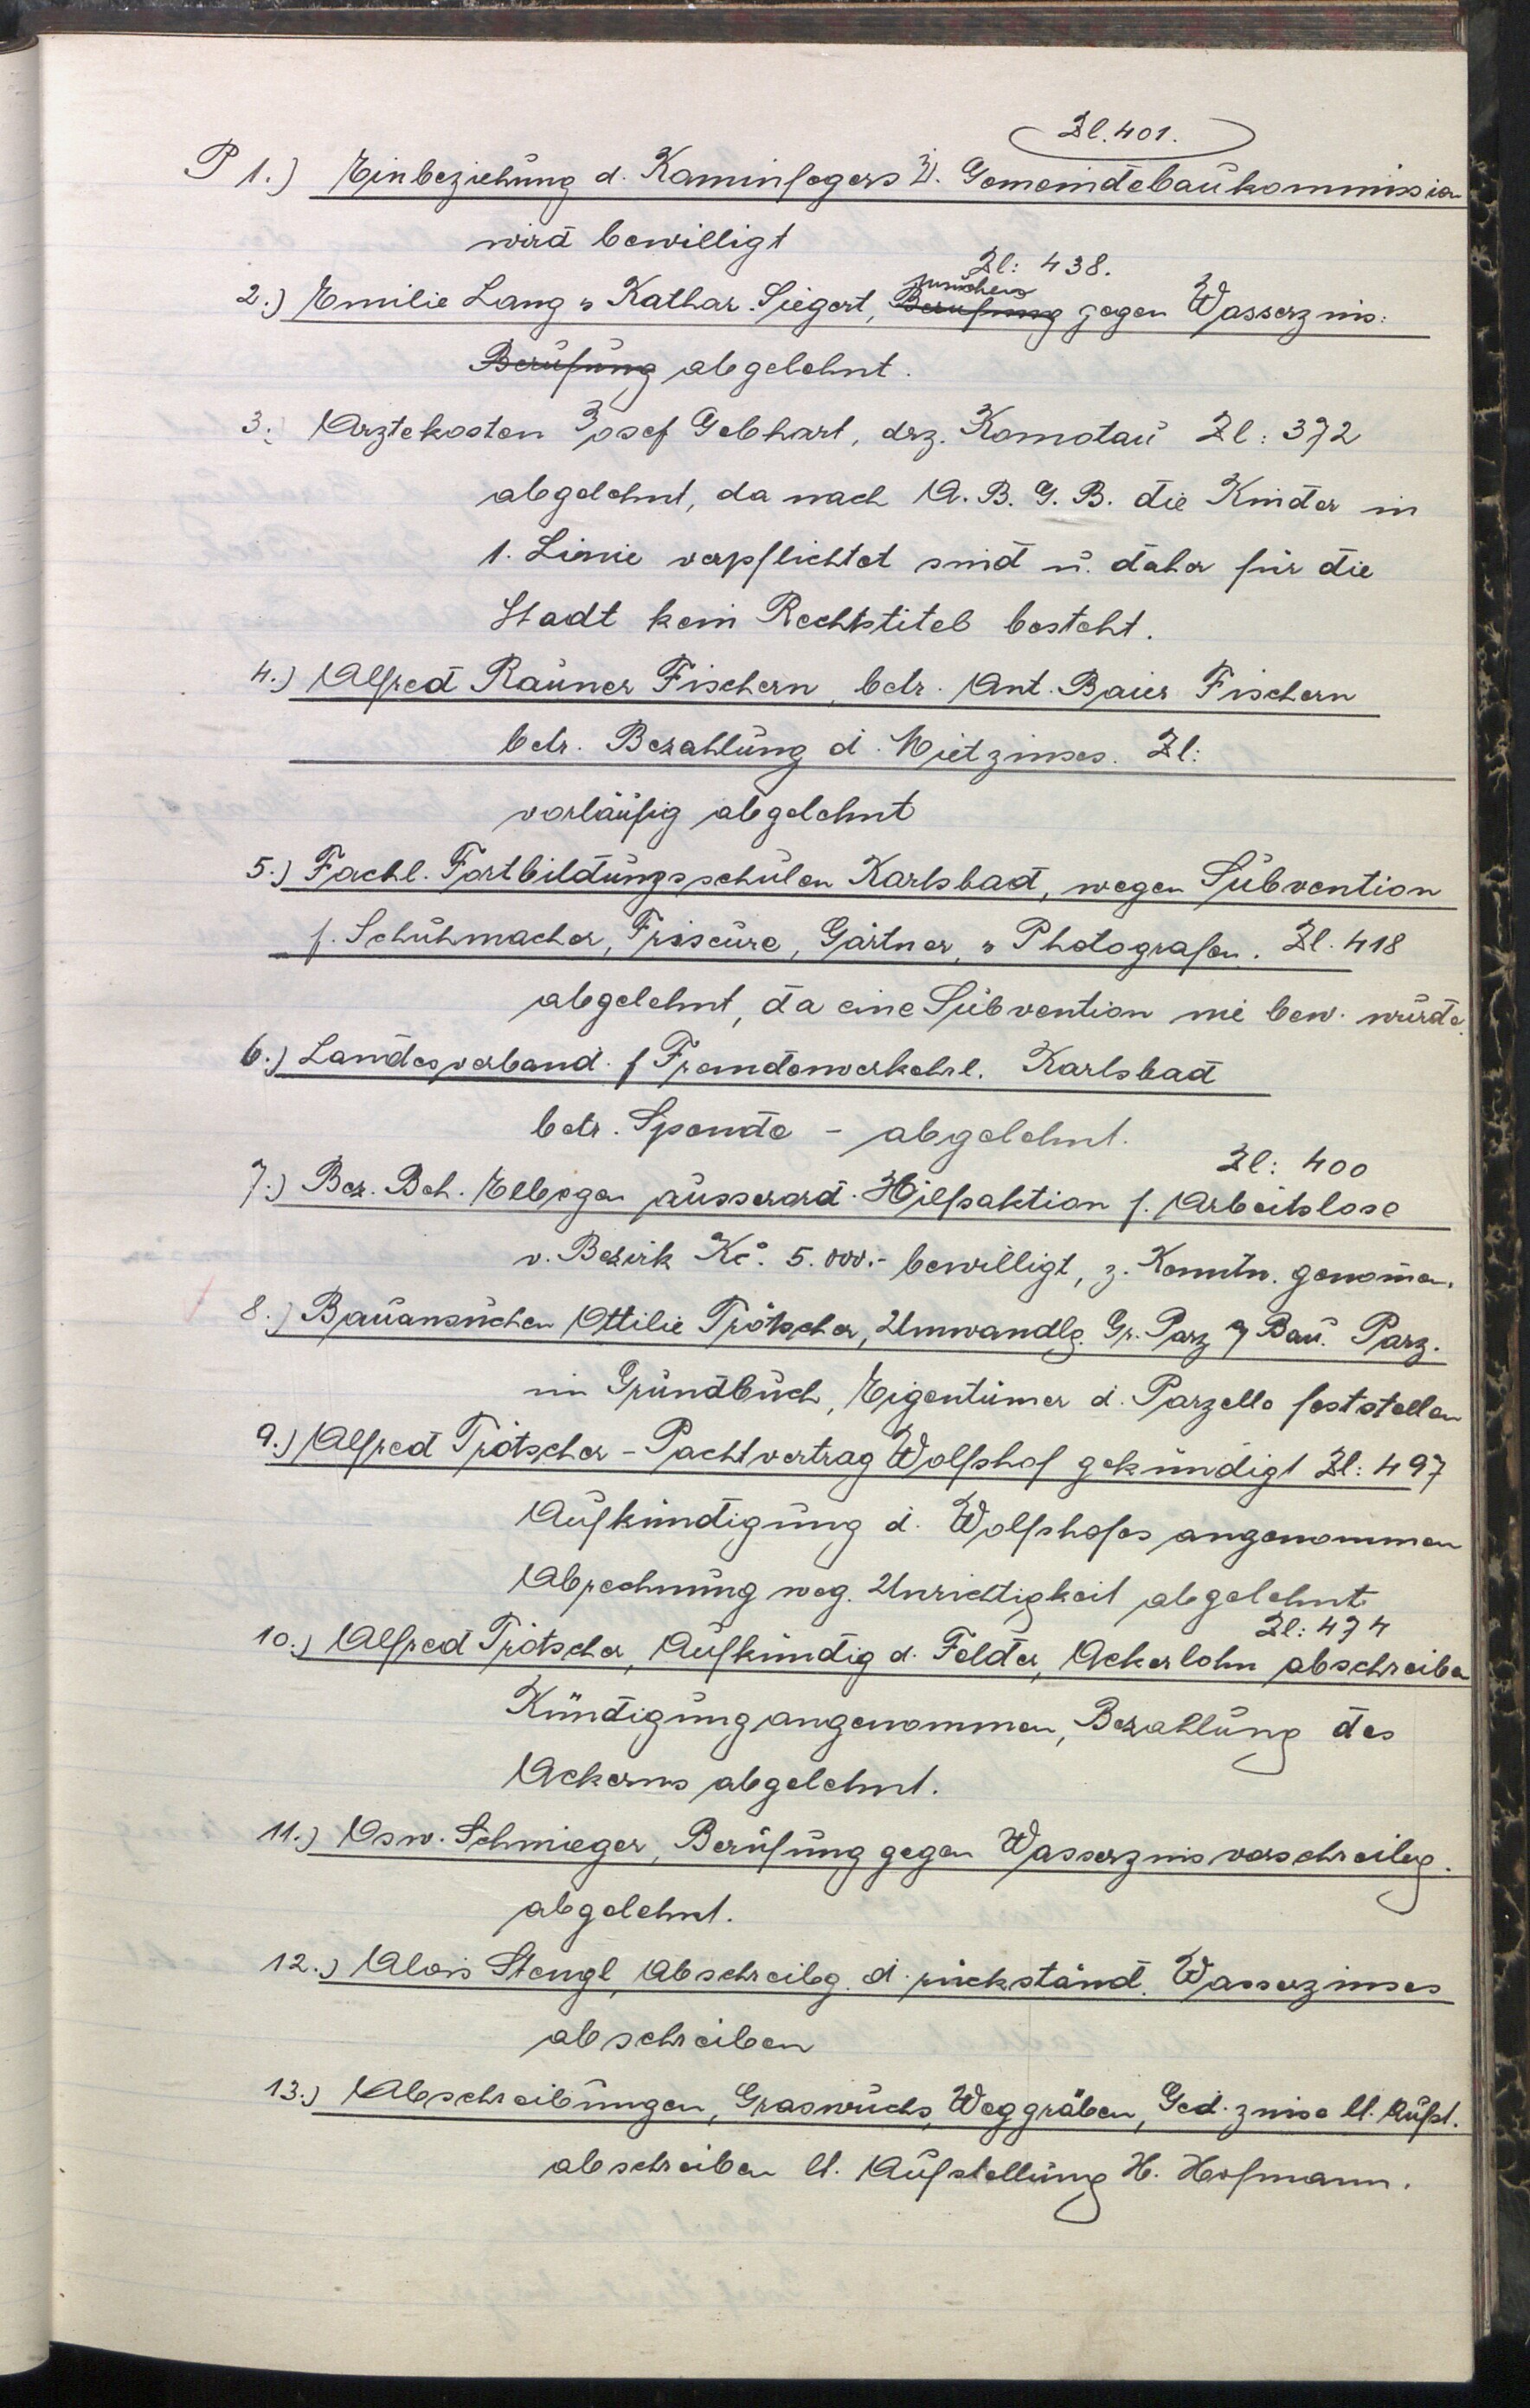 Zl. 401.
P 1.) Einbeziehung d. Kaminfegers z. Gemeindebaukommission
wird bewilligt
Zl: 438.
2.) Emilie Lang u Kathar. Siegert, Ansuchen Berufung gegen Wasserzins:
Berufung abgelehnt.
3.) Arztekosten Josef Gebhart, drz. Komotau Zl: 372
abgelehnt, da nach A. B. G. B. die Kinder in
1. Linie verpflichtet sind u. daher für die
Stadt kein Rechtstitel besteht.
4.) Alfred Rauner Fischern, betr. Ant. Baier Fischern
betr. Bezahlung d. Mietzinses. Zl:
vorläufig abgelehnt
5.) Fachl. Fortbildungsschulen Karlsbad, wegen Subvention
f. Schuhmacher, Friseure, Gärtner, u Photografen. Zl. 418
abgelehnt, da eine Subvention nie bew. wurde.
6.) Landesverband f Fremdenverkehrl. Karlsbad
betr. Spende - abgelehnt.
Zl: 400
7.) Bez. Beh. Elbogen ausserord. Hilfsaktion f. Arbeitslose
v. Bezirk Kč. 5.000.- bewilligt, z. Kenntn. genomen.
8.) Bauansuchen Ottilie Trötscher, Umwandlg. Gr. Parz Bau. Parz.
im Grundbuch, Eigentümer d. Parzelle feststellen
9.) Alfred Trötscher - Pachtvertrag Wolfshof gekündigt Zl: 497
Aufkündigung d. Wolfshofes angenommen
Abrechnung weg. Unrichtigkeit abgelehnt
Zl: 474
10.) Alfred Trötscher, Aufkündig d. Felder, Ackerlohn abschreiben
Kündigung angenommen, Bezahlung des
Ackerns abgelehnt.
11.) Osw. Schmieger, Berufung gegen Wasserzinsvorschreibg.
abgelehnt.
12.) Alois Stengl, Abschreibg. d. rückständ. Wasserzinses
abschreiben
13.) Abschreibungen, Graswuchs, Weggräben, Ged. zinse lt. Aufst.
abschreiben lt. Aufstellung H. Hofmann.